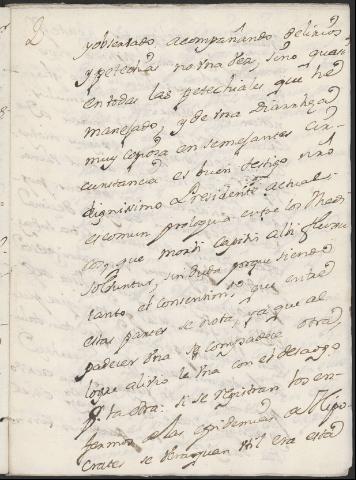 2
y obserbado acompañando delirios,
y petechias no una vez, sino quasi
en todas las petechiales que hé
manejado, y de una Diarrhea
muy copiosa en semejantes cir-
cunstancias es buen testigo nrõ
dignissimo Presidente actual:
es comun prologuio entre los Medi
cos, que morbi capitis alvi fluxu
solvuntur, sin duda porque siendo
tanto el consentim.to que entre
estas partes se nota, ya que al
padecer una se compadece otra,
logre alivio la una con el desaogo
de la otra: si se registran los en-
fermos de las Epidemias de Hipo-
crates se veraquan util era esta